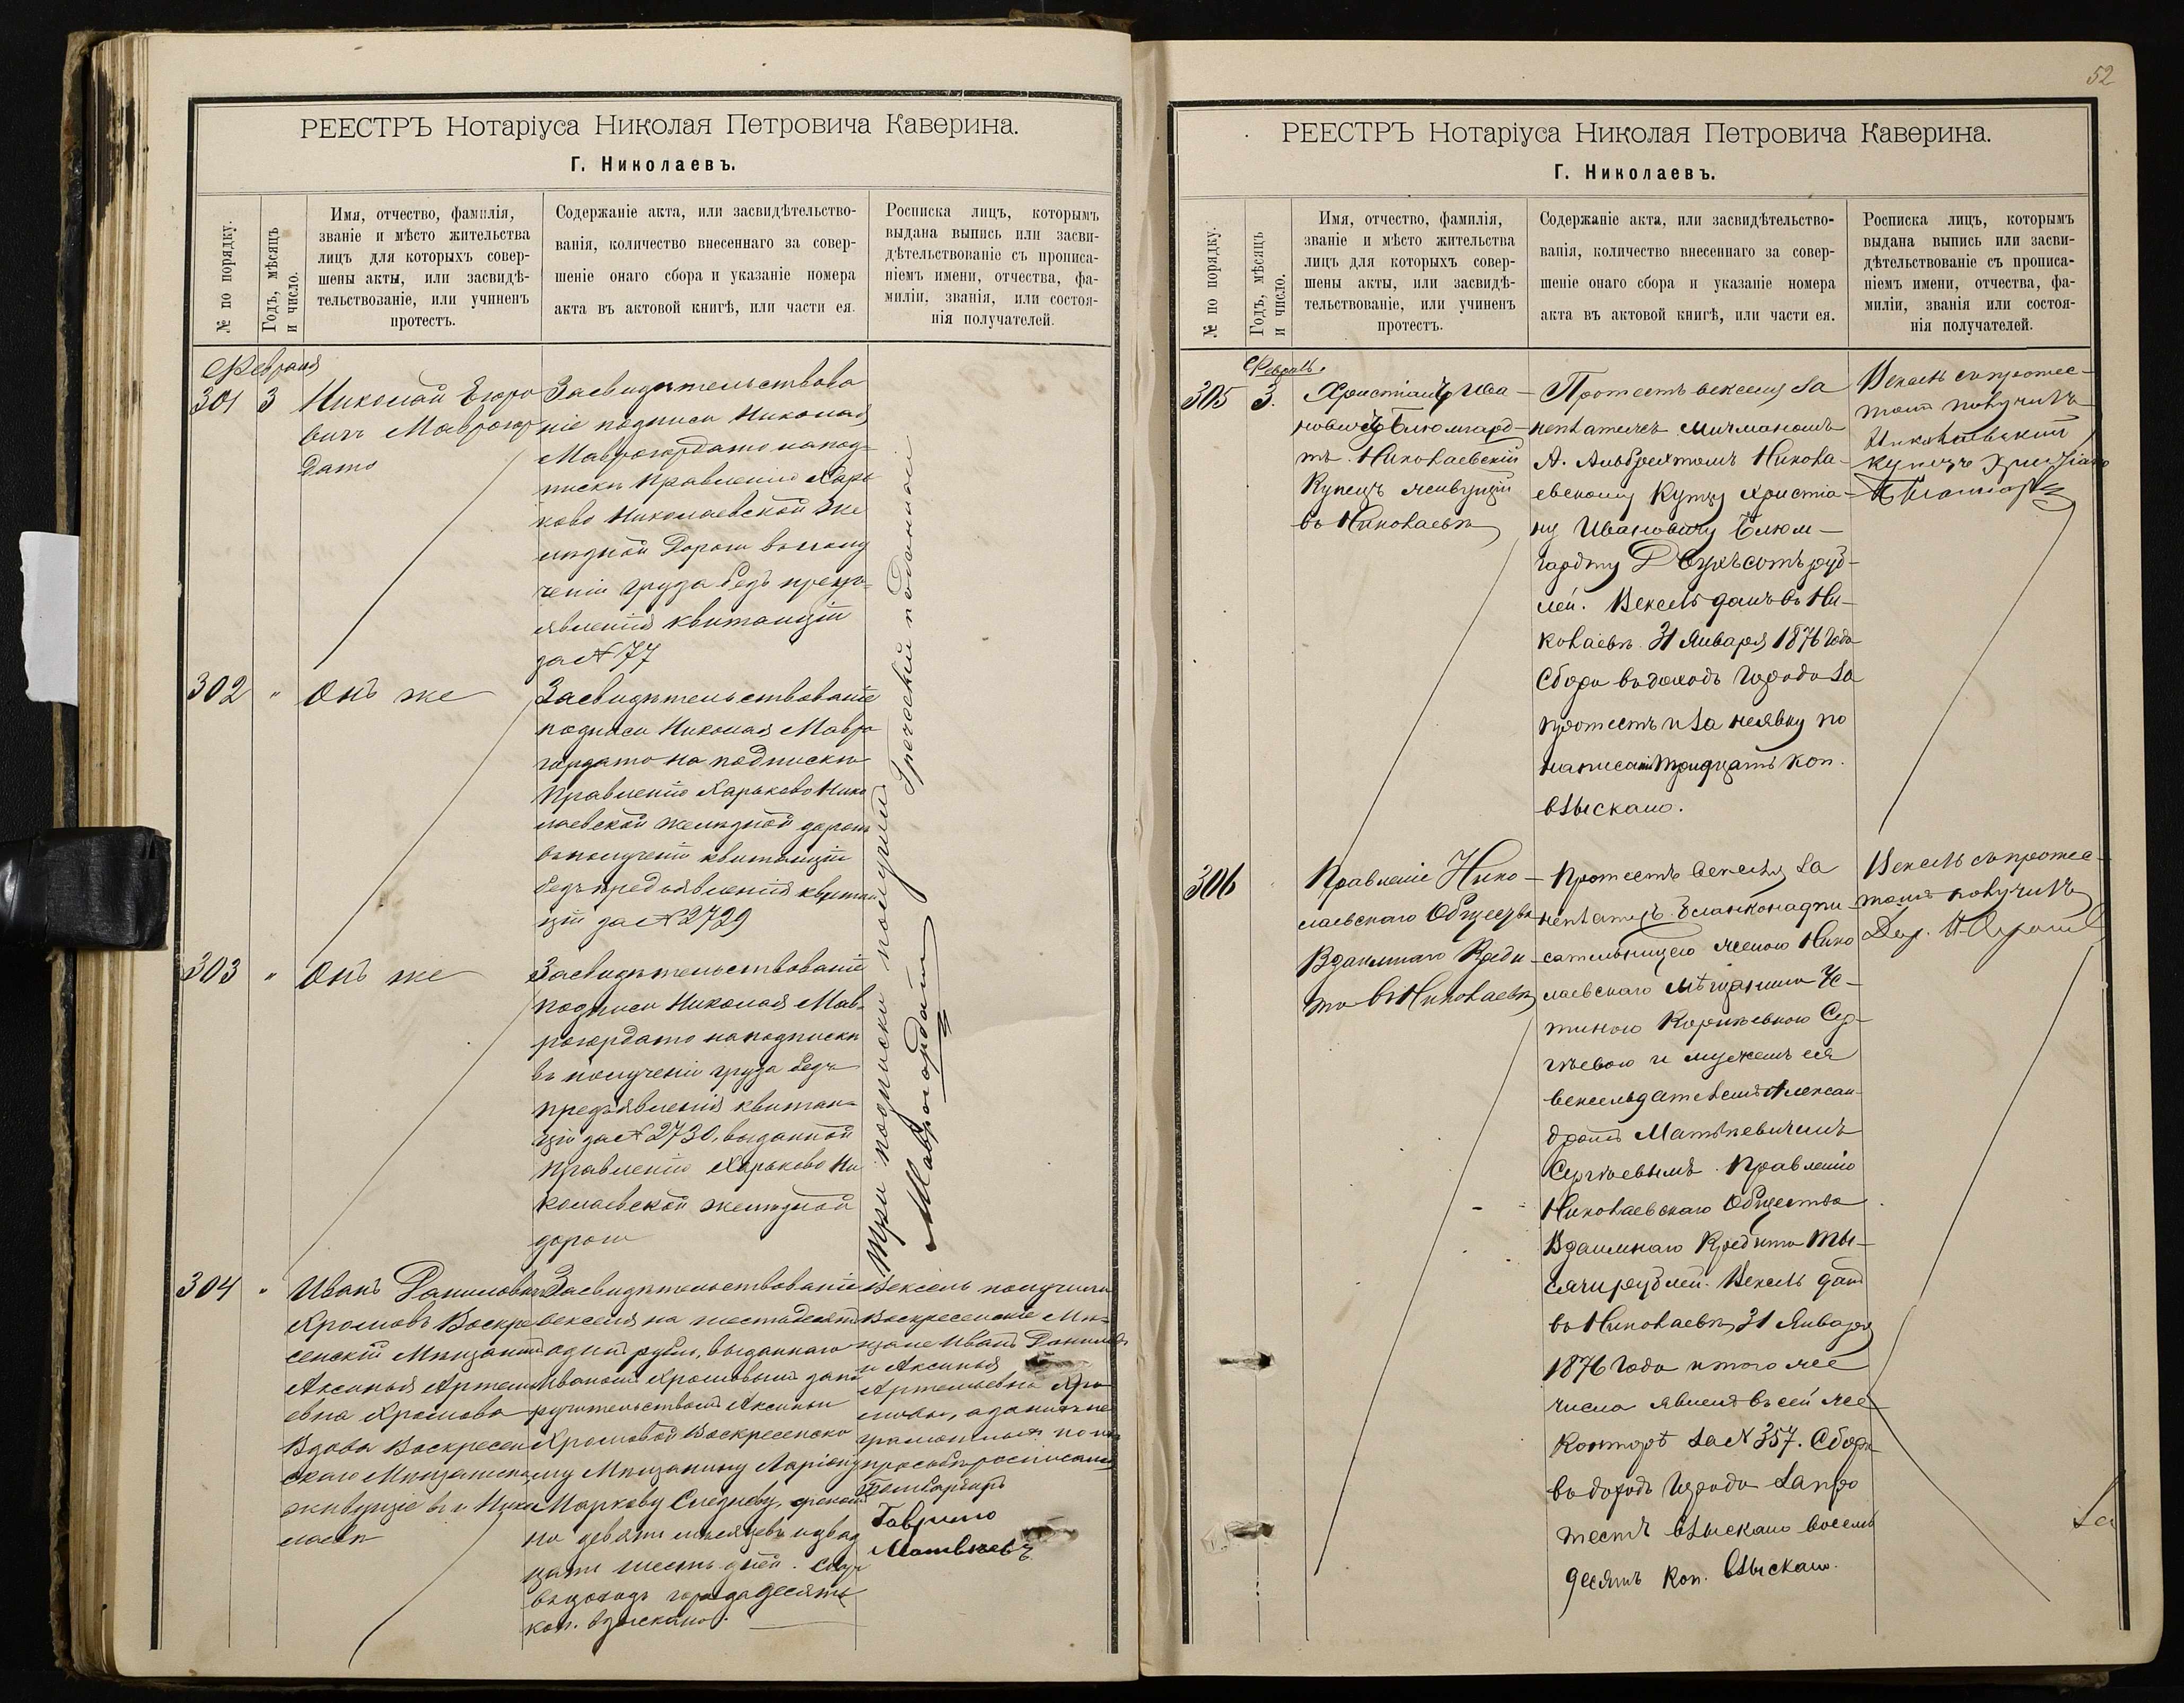 РЕЕСТРЪ Нотаріуса Николая Петровича Каверина.
Г. Николаевъ.
№ по порядку.
Годъ, мѣсяцъ
и число.
Имя, отчество, фамилія,
званіе и мѣсто жительства
лицъ для которыхъ совер-
шены акты, или засвидѣ-
тельствованіе, или учиненъ
протестъ.
Содержаніе акта, или засвидѣтельство-
ванія, количество внесеннаго за совер-
шеніе онаго сбора и указаніе номера
акта въ актовой книгѣ, или части ея.
Росписка лицъ, которымъ
выдана выпись или засви-
дѣтельствованіе съ прописа-
ніемъ имени, отчества, фа-
миліи, званія, или состоя-
нія получателей.
Февраля
301 3
Николай Егоро
вичъ Маврогор
дато
Засвидѣтельствова
ніе подписи Николая
Маврогордато на под-
пискѣ Правленію Харь
ково Николаевской Же
лѣзной Дороги въ полу
ченіи груза безъ предъ-
явленія квитанціи
за № 77
302 "
Онъ же
Засвидѣтельствованіе
подписи Николая Мавро
гордато на подпискѣ
Правленію Харьково Нико
лаевской желѣзной дороги
въ полученіи квитанціи
безъ предъявленія квитан
ціи за № 2729
303 "
Онъ же
Засвидѣтельствованіе
подписи Николая Мав-
рогордато на подпискѣ
въ полученіи груза безъ
предъявленія квитан-
ціи за № 2730, выданной
Правленію Харьково Ни
колаевской желѣзной
дороги
Три подписки получилъ Греческій подданный
Маврогордато
304 "
Иванъ Даниловичъ
Хромовъ Воскре
сенскій Мѣщанинъ
Аксинья Артемь
евна Хромова
Вдова Воскресен
скаго Мѣщанина
живущіе въ г. Нико
лаевѣ
Засвидѣтельствованіе
векселя на шестьдесятъ
одинъ рубль, выданнаго
Иваномъ Хромовымъ за по
ручительствомъ Аксиньи
Хромовой Воскресенско
му Мѣщанину Ларіону
Маркову Следневу, срокомъ
на девять мѣсяцевъ и двад
цать шесть дней. Сборъ
въ доходъ города десять
коп. взыскано.
Вексель получили
Воскресенскіе Мѣ-
щане Иванъ Данилов
и Аксинья
Артемьевна Хро
мовы, а за них не
грамотных по их
просьбѣ росписался
Бомбардиръ
Гаврило
Матвѣевъ
52
РЕЕСТРЪ Нотаріуса Николая Петровича Каверина.
Г. Николаевъ.
№ по порядку.
Годъ, мѣсяцъ
и число.
Имя, отчество, фамилія,
званіе и мѣсто жительства
лицъ для которыхъ совер-
шены акты, или засвидѣ-
тельствованіе, или учиненъ
протестъ.
Содержаніе акта, или засвидѣтельство-
ванія, количество внесеннаго за совер-
шеніе онаго сбора и указаніе номера
акта въ актовой книгѣ, или части ея.
Росписка лицъ, которымъ
выдана выпись или засви-
дѣтельствованіе съ прописа-
ніемъ имени, отчества, фа-
миліи, званія или состоя-
нія получателей.
Февраль.
305 3.
Христіанъ Ива-
новичъ Блюмгард-
тъ Николаевскій
Купецъ живущій
въ Николаевѣ
Протестъ векселя за
неплатежъ Мичманомъ
А. Альбрехтомъ Никола-
евскому Купцу Христіа-
ну Ивановичу Блюм-
гардту Двухъсотъ руб-
лей. Вексель данъ въ Ни-
колаевѣ 31 Января 1876 года
Сбора въ доходъ города за
протестъ и за неявку по
написаніи тридцать коп.
взыскано.
Вексель съ протес-
томъ получилъ
Николаевский
купецъ Христіанъ
306
Правленіе Нико-
лаевскаго Общества
Взаимнаго Креди-
та въ Николаевѣ
Протестъ векселя за
неплатежъ бланконадпи-
сательницею женою Нико
лаевскаго мѣщанина Ус-
тиною Корнѣевною Сер-
гѣевою и мужемъ ея
векселедателемъ Алексан-
дромъ Матвѣевичемъ
Сергѣевымъ Правленію
Николаевскаго Общества
Взаимнаго Кредита Ты-
сячи рублей. Вексель данъ
въ Николаевѣ 31 Января
1876 года и того же
числа явленъ въ сей же
конторѣ за № 357. Сбора
въ доходъ города за про
тестъ взыскано восемь
десятъ коп. взыскано.
Вексель съ протес-
томъ получилъ
За